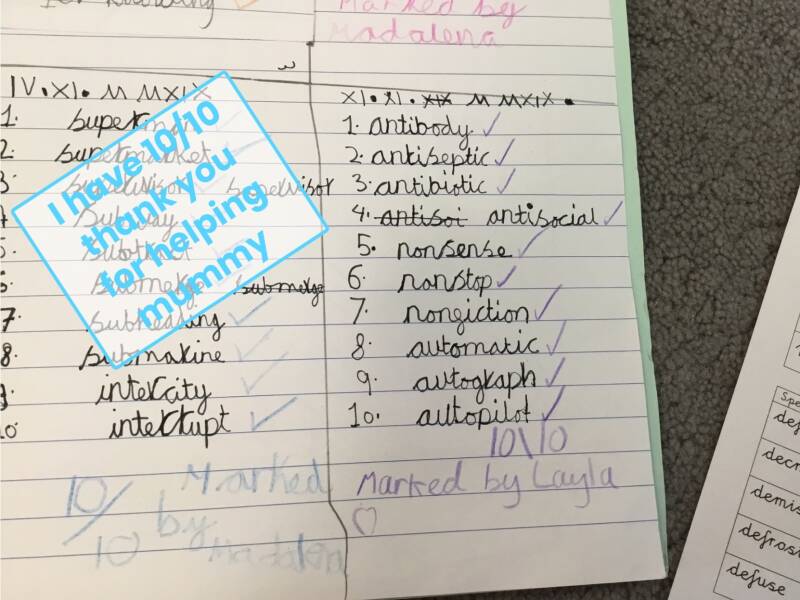 Marked by
Madalena
IV.XI. M MXIX
1. superman
2. supermarket
3 supervisor supervisor
subway
subtract
submerge submerge
7. subheading
8. submarine
intercity
10 interrupt
10/10
Marked
by
Madalen
I have 10/10
thank you
for helping
mummy
XI. XI. XIX M MXIX.
1. antibody
2. antiseptic
3. antibiotic
4. antisoi antisocial
5. nonsense
6. nonstop
7. nongiction
8. automatic
9. autograph
10. autopilot
10\10
Marked by Layla
Spe
def
decr
demis
defros
defuse